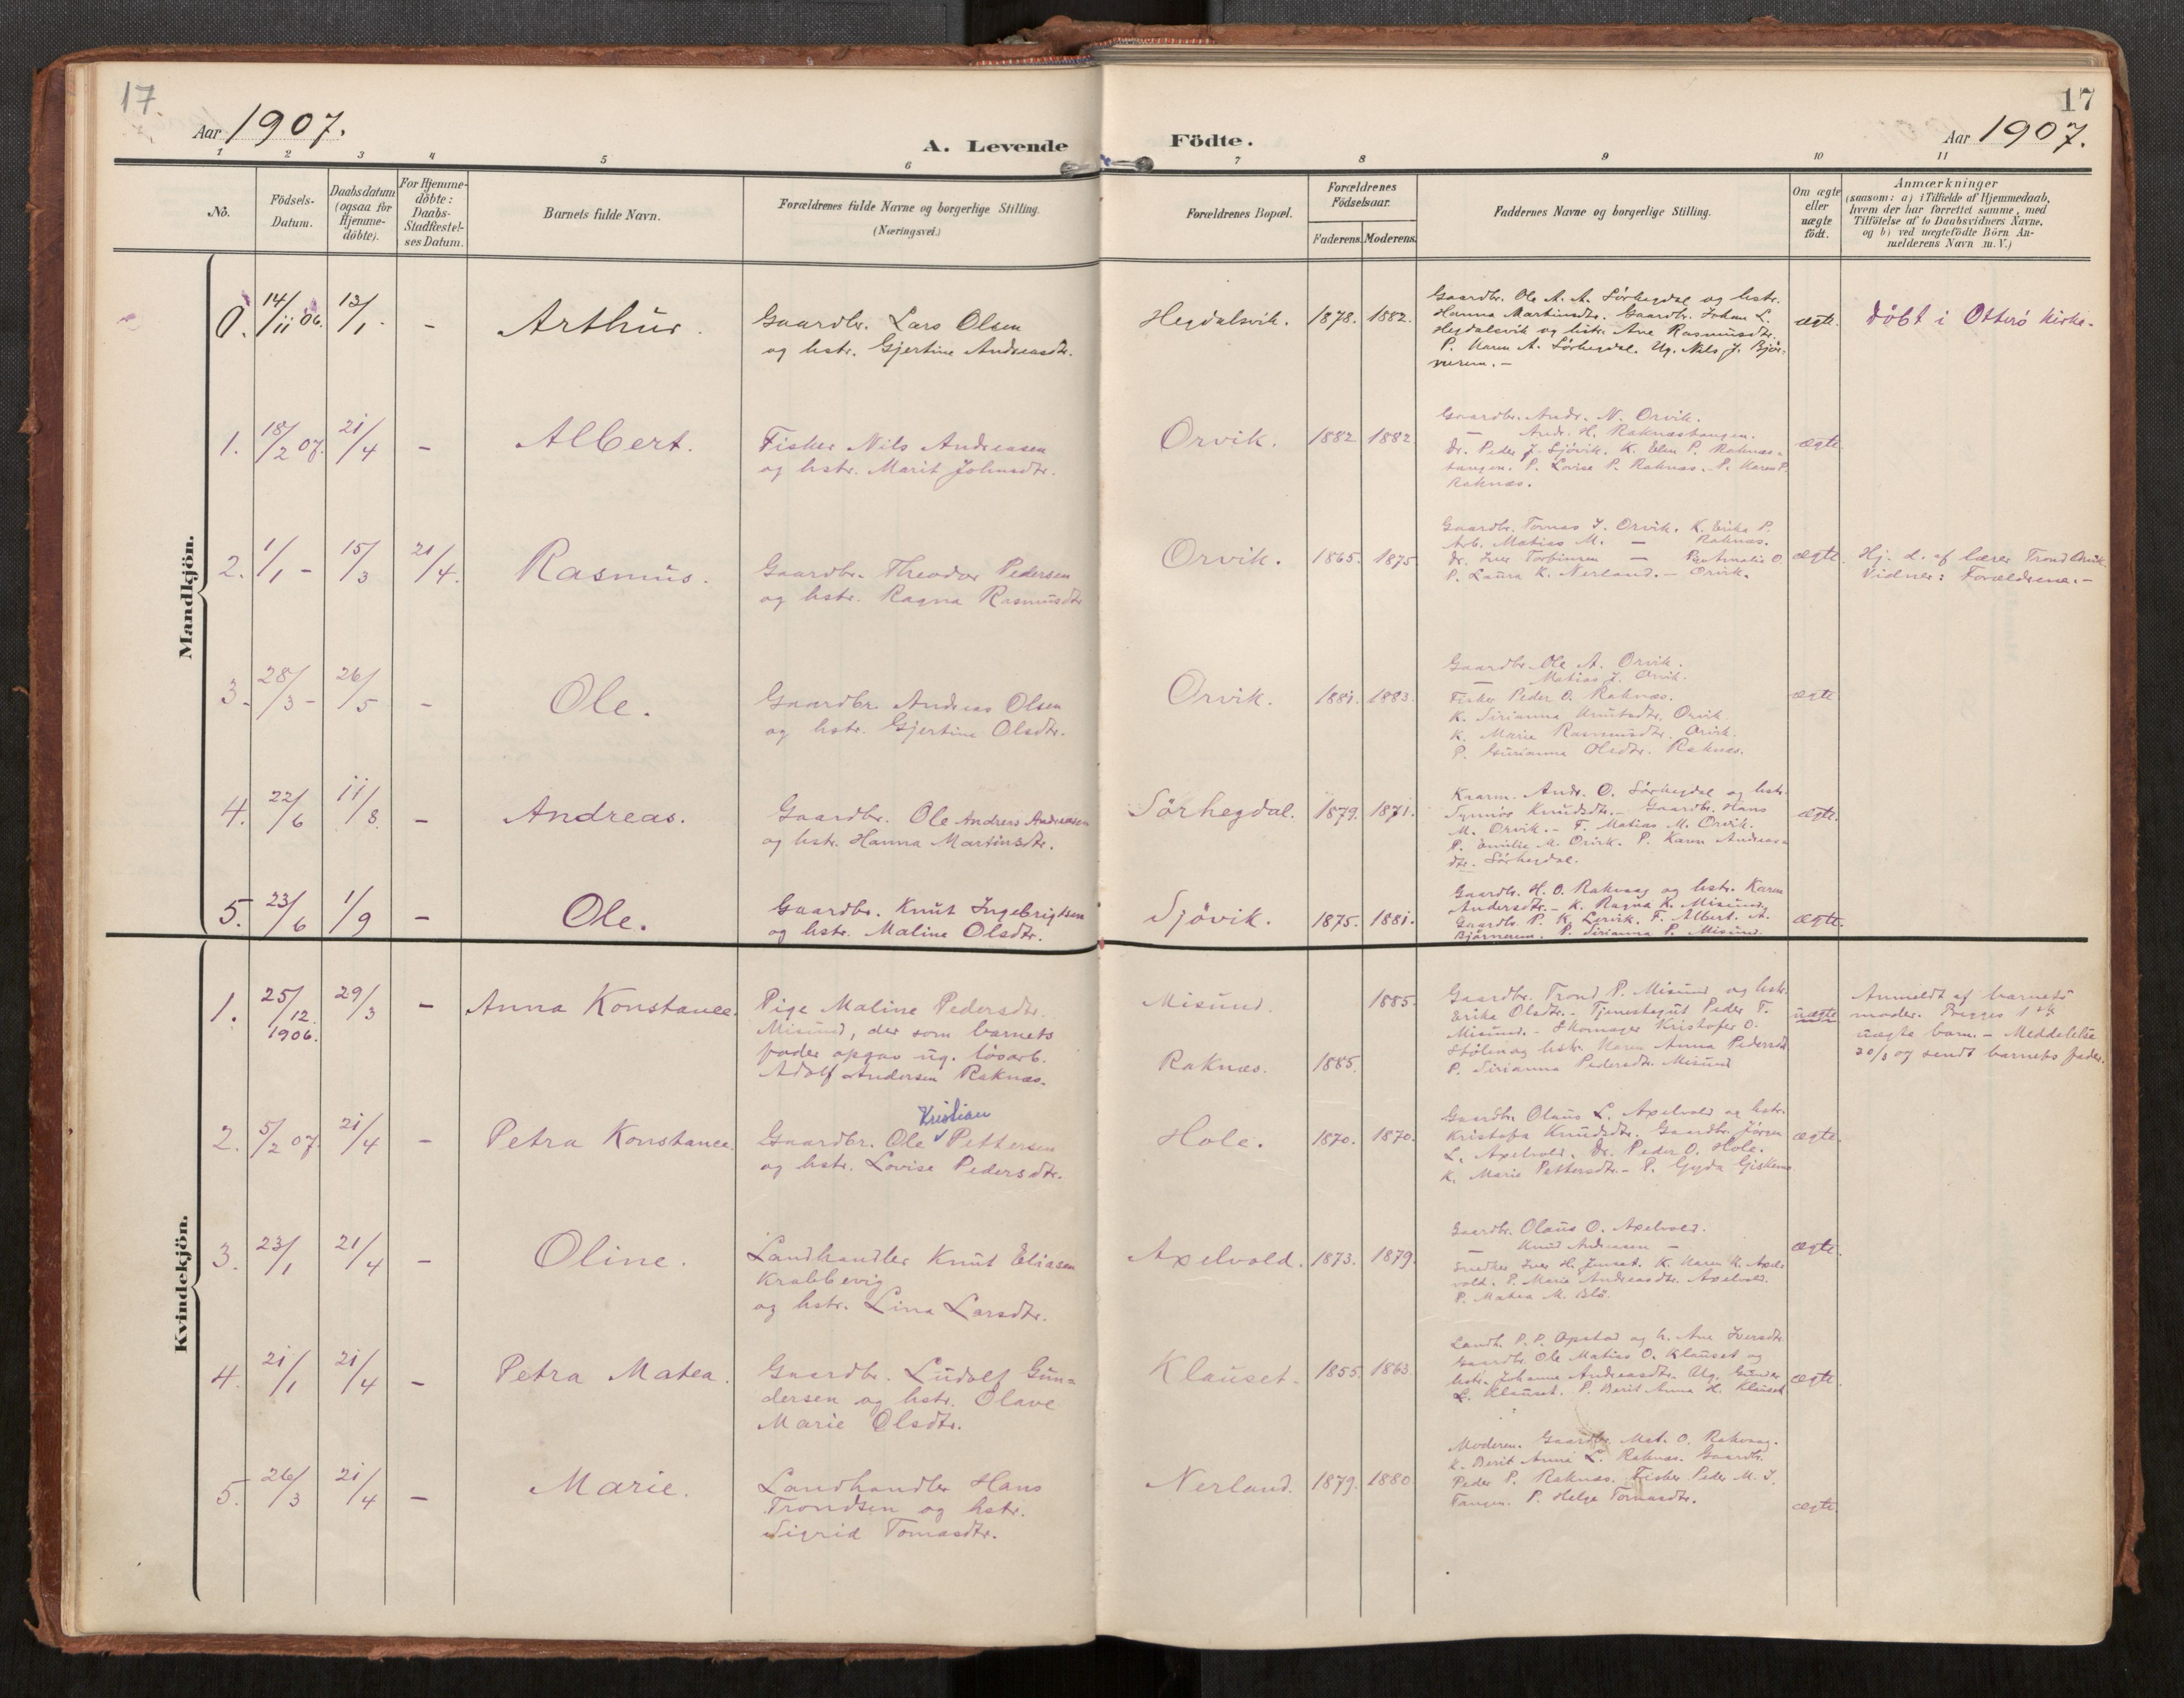 17.
17
Aar 1907.
A. Levende Födte.
Aar 1907.
1 2 3 4 5 6 7 8 9 10 11
No.
Födsels-
Datum.
Daabsdatum
(ogsaa for
Hjemme-
döbte).
For Hjemme-
döbte:
Daabs-
Stadfæstel-
ses Datum.
Barnets fulde Navn.
Forældrenes fulde Navne og borgerlige Stilling.
(Næringsvei.)
Forældrenes Bopæl.
Forældrenes
Födselsaar.
Faderens. Moderens.
Faddernes Navne og borgerlige Stilling.
Om ægte
eller
uægte
födt.
Anmærkninger
(saasom: a) i Tilfælde af Hjemmedaab,
hvem der har forrettet samme, med
Tilföielse af to Daabsvidners Navne.
og b) ved uægtefödte Börn An-
melderens Navn m. V.)
Mandkjön.
0. 14/11 06. 13/1. - Arthur.
Gaardbr. Lars Olsen
og hstr. Gjertine Andreasdtr.
Hegdalsvik. 1878. 1882.
Gaardbr. Ole A. A. Sörhegdal og hstr.
Hanna Martinsdtr. Gaardbr. Johan L.
Hegdalsvik og hstr. Ane Rasmusdtr.
P. Karen A. Sörhegdal. Ug. Nils J. Björ-
nerem. -
ægte. Döbt i Otterö kirke.
1. 18/2 07. 21/4 - Albert.
Fisker Nils Andreasen
og hstr. Marit Johnsdtr.
Orvik. 1882 1882
Gaardbr. Andr. N. Orvik.
— Andr. H. Raknestangen.
Dr. Peder J. Sjövik. K. Elen P. Raknes-
tangen. P. Lovise P. Raknes. P. Karen P.
Raknes.
ægte.
2. 1/1 - 15/3 21/4. Rasmus.
Gaardbr. Theodor Pedersen
og hstr. Ragna Rasmusdtr
Orvik. 1865. 1875
Gaardbr. Tomas J. Orvik. K. Erika P.
Arb. Matias M. — Raknes.
Dr. Iver Torbinsen — P. Amalie O.
P. Laura K. Nerland. - Orvik.
ægte. Hj. d. af lærer Trond Orvik
Vidner: Forældrene. -
3. 28/3 - 26/5 - Ole.
Gaardbr. Andreas Olsen
og hstr. Gjertine Olsdtr.
Orvik. 1881. 1883.
Gaardbr. Ole A. Orvik.
— Matias J. Orvik.
Fisker Peder O. Raknes.
K. Sirianna Knutsdtr. Orvik.
K. Marie Rasmusdtr. Orvik.
P. Gurianna Olsdtr. Raknes.
ægte
4. 22/6 11/8. - Andreas.
Gaardbr. Ole Andreas Andreasen
og hstr. Hanna Martinsdtr.
Sörhegdal. 1879. 1871.
Kaarm. Andr. O. Sörhegdal og hstr.
Synnöv Knudsdtr. - Gaardbr. Hans
M. Orvik. - F. Matias M. Orvik.
P. Emilie M. Orvik. P. Karen Andreas-
dtr. Sörhegdal.
ægte.
5. 23/6 1/9 - Ole.
Gaardbr. Knut Ingebrigtsen
og hstr. Maline Olsdtr.
Sjövik. 1875. 1881.
Gaardbr. H. O. Rakvaag og hstr. Karen
Andersdtr. - K. Ragna K. Misund.
Gaardbr. P. K. Lervik. F. Albert A.
Björnerem. P. Sirianna P. Misund.
ægte.
Kvindekjön.
1. 25/12. 1906. 29/3 - Anna Konstance.
Pige Maline Pedersdtr.
Misund, der som barnets
fader opgav ug. lösarb.
Adolf Andersen Raknes.
Misund. 1885.
Raknes. 1885.
Gaardbr. Trond P. Misund og hstr.
Erika Olsdtr. - Tjenestegut Peder T.
Misund. - Skomager Kristofer O.
Stölen og hstr. Karen Anna Pedersdtr
P. Sirianna Pedersdtr. Misund
uægte
Anmeldt af barnets
moder. Begges 1ste
uægte barn. - Meddelelse
30/3 og sendt barnets fader.
2. 5/2 07. 21/4 - Petra Konstance.
Kristian
Gaardbr. Ole Pettersen
og hstr. Lovise Pedersdtr.
Hole. 1870. 1870.
Gaardbr. Olaus L. Axelvold og hstr.
Kristofa Knudsdtr. Gaardbr. Jörgen
L. Axelvold. Dr. Peder O. Hole.
K. Marie Pettersdtr. - P. Gyda Giskemo
ægte.
3. 23/1 21/4 - Oline.
Landhandler Knut Eliasen
Krabbevig
og hstr. Lina Larsdtr.
Axelvold. 1873. 1879.
Gaardbr. Olaus O. Axelvold.
— Knud Andreasen —
Snedker Iver H. Jenset. K. Karen K. Axel-
vold. P. Marie Andreasdtr. Axelvold.
P. Matea M. Blö.
ægte.
4. 21/1 21/4 - Petra Matea.
Gaardbr. Ludolf Gun-
dersen og hstr. Olave
Marie Olsdtr.
Klauset. 1855. 1863
Landh. P. P. Opstad og h. Ane Iversdtr
Gaardbr. Ole Matias O. Klauset og
hstr. Johanna Andreasdtr. Ug. Gunder
L. Klauset. P. Berit Anna H. Klauset
ægte.
5. 26/3 21/4 - Marie.
Landhandler Hans
Trondsen og hstr.
Sigrid Tomasdtr.
Nerland. 1879. 1880.
Moderen. Gaardbr. Mat. O. Rakvaag.
K. Berit Anna L. Raknes. Gaardbr.
Peder P. Raknes. Fisker Peder M. J.
Tangen. P. Helga Tomasdtr.
ægte.